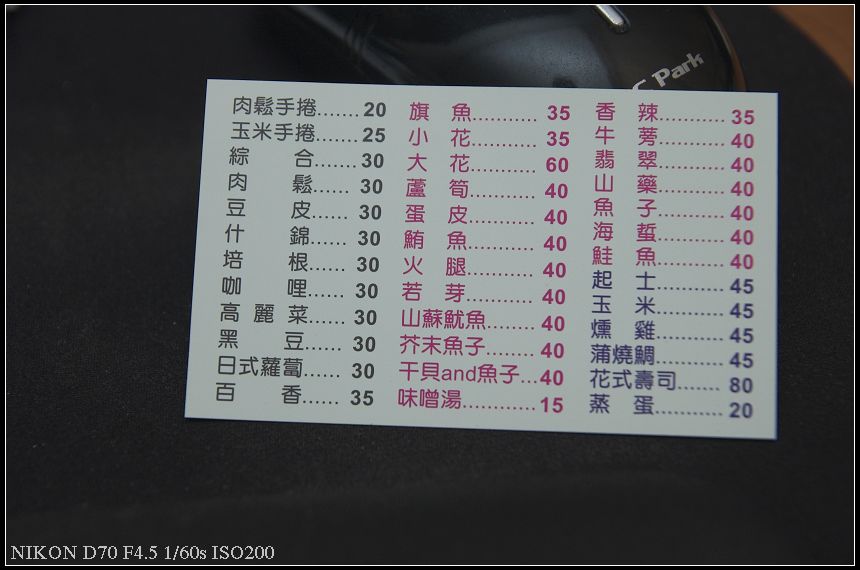 C Park
肉鬆手捲.......20
玉米手捲.......25
綜 合.......30
肉 鬆...... 30
豆 皮...... 30
什 錦...... 30
培 根...... 30
咖 哩...... 30
高 麗 菜...... 30
黑 豆...... 30
日式蘿蔔....... 30
百 香...... 35
旗 魚............ 35
小 花............ 35
大 花............ 60
蘆 筍............ 40
蛋 皮............ 40
鮪 魚............ 40
火 腿............ 40
若 芽............ 40
山蘇魷魚.......... 40
芥末魚子.......... 40
干貝and魚子...40
味噌湯............. 15
香 辣............ 35
牛 蒡............ 40
翡 翠............ 40
山 藥............ 40
魚 子............ 40
海 蜇............ 40
鮭 魚............ 40
起 士............ 45
玉 米............ 45
燻 雞............ 45
蒲燒鯛............ 45
花式壽司....... 80
蒸 蛋............ 20
NIKON D70 F4.5 1/60s ISO200